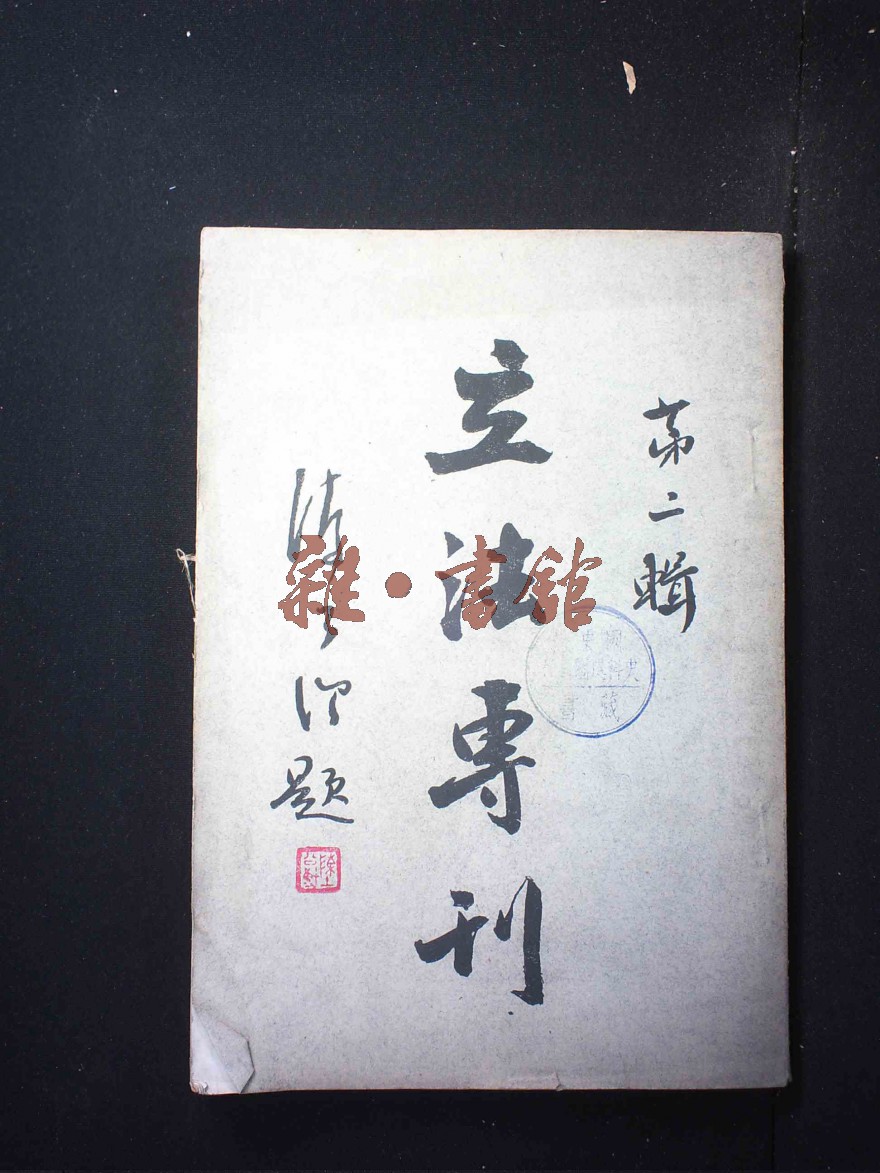 第二輯
立法專刊
題
雜·書館